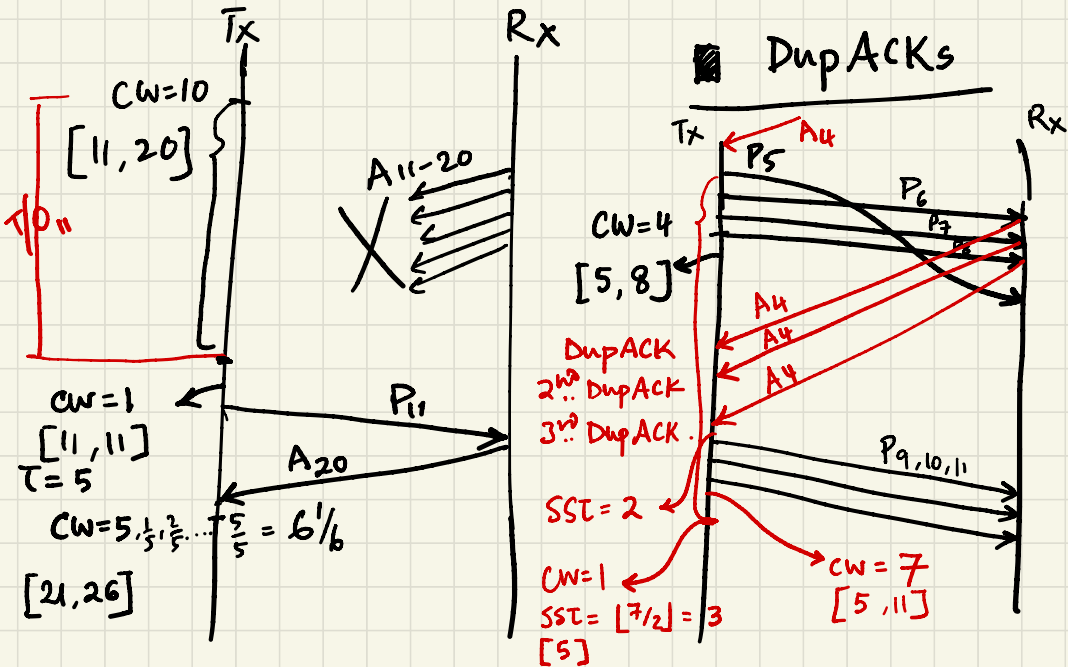 Tx
Rx
CW=10
[11,20]
TO11
A11-20
CW=1
[11,11]
T=5
P11
A20
CW=5,1/5,2/5....5/5 = 6 1/6
[21,26]
DupACKs
Tx
A4
Rx
P5
P6
P7
CW=4
[5,8]
A4
A4
A4
DupACK
2nd DupACK
3rd DupACK.
P9,10,11
SST=2
CW=1
SST=⌊7/2⌋=3
[5]
CW=7
[5,11]